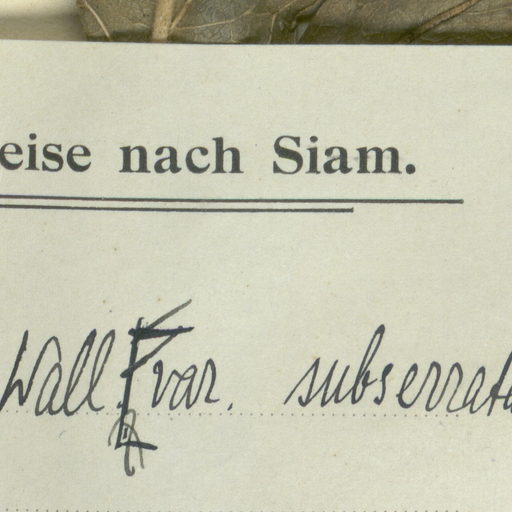 eise nach Siam.
Wall. var. subserrata